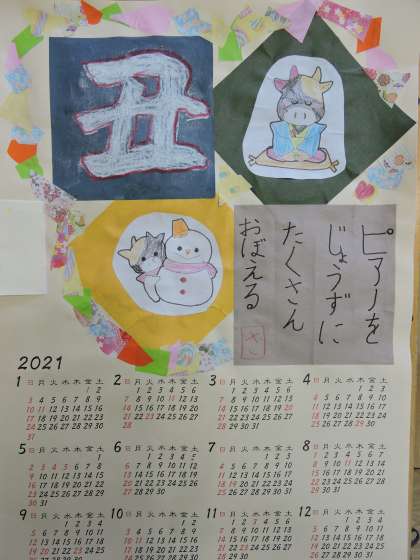 丑
ピアノを
じょうずに
たくさん
おぼえる
2021
1 日 月 火 水 木 金 土
1 2
3 4 5 6 7 8 9
10 11 12 13 14 15 16
17 18 19 20 21 22 23
24 25 26 27 28 29 30
31
2 日 月 火 水 木 金 土
1 2 3 4 5 6
7 8 9 10 11 12 13
14 15 16 17 18 19 20
21 22 23 24 25 26 27
28
3 日 月 火 水 木 金 土
1 2 3 4 5 6
7 8 9 10 11 12 13
14 15 16 17 18 19 20
21 22 23 24 25 26 27
28 29 30 31
4 日 月 火 水 木 金 土
1 2 3
4 5 6 7 8 9 10
11 12 13 14 15 16 17
18 19 20 21 22 23 24
25 26 27 28 29 30
5 日 月 火 水 木 金 土
1
2 3 4 5 6 7 8
9 10 11 12 13 14 15
16 17 18 19 20 21 22
23 24 25 26 27 28 29
30 31
6 日 月 火 水 木 金 土
1 2 3 4 5
6 7 8 9 10 11 12
13 14 15 16 17 18 19
20 21 22 23 24 25 26
27 28 29 30
7 日 月 火 水 木 金 土
1 2 3
4 5 6 7 8 9 10
11 12 13 14 15 16 17
18 19 20 21 22 23 24
25 26 27 28 29 30 31
8 日 月 火 水 木 金 土
1 2 3 4 5 6 7
8 9 10 11 12 13 14
15 16 17 18 19 20 21
22 23 24 25 26 27 28
29 30 31
9 日 月 火 水 木 金 土
1 2 3 4
5 6 7 8 9 10 11
12 13 14 15 16 17 18
19 20 21 22 23 24 25
10 日 月 火 水 木 金 土
1 2
3 4 5 6 7 8 9
10 11 12 13 14 15 16
17 18 19 20 21 22 23
11 日 月 火 水 木 金 土
1 2 3 4 5 6
7 8 9 10 11 12 13
14 15 16 17 18 19 20
21 22 23 24 25 26 27
12 日 月 火 水 木 金 土
1 2 3 4
5 6 7 8 9 10 11
12 13 14 15 16 17 18
19 20 21 22 23 24 25